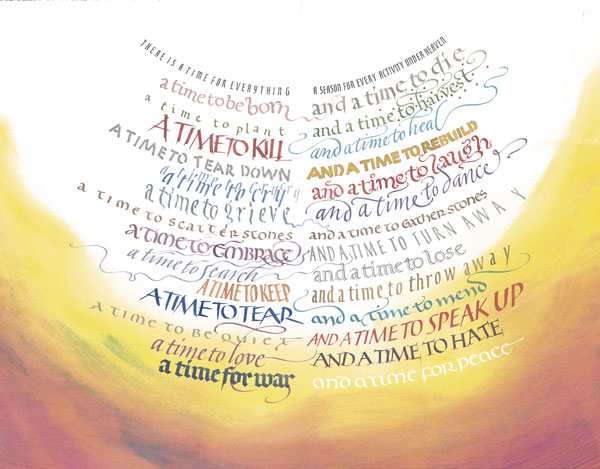 THERE IS A TIME FOR EVERYTHING A SEASON FOR EVERY ACTIVITY UNDER HEAVEN
a time to be born and a time to die
a time to plant and a time to harvest
A TIME TO KILL and a time to heal
A TIME TO TEAR DOWN AND A TIME TO REBUILD
a time to cry and a time to laugh
a time to grieve and a time to dance
a time to scatter stones and a time to gather stones
a time to embrace AND A TIME TO TURN AWAY
a time to search and a time to lose
A TIME TO KEEP and a time to throw away
A TIME TO TEAR and a time to mend
a time to be quiet AND A TIME TO SPEAK UP
a time to love AND A TIME TO HATE
a time for war and a time for peace